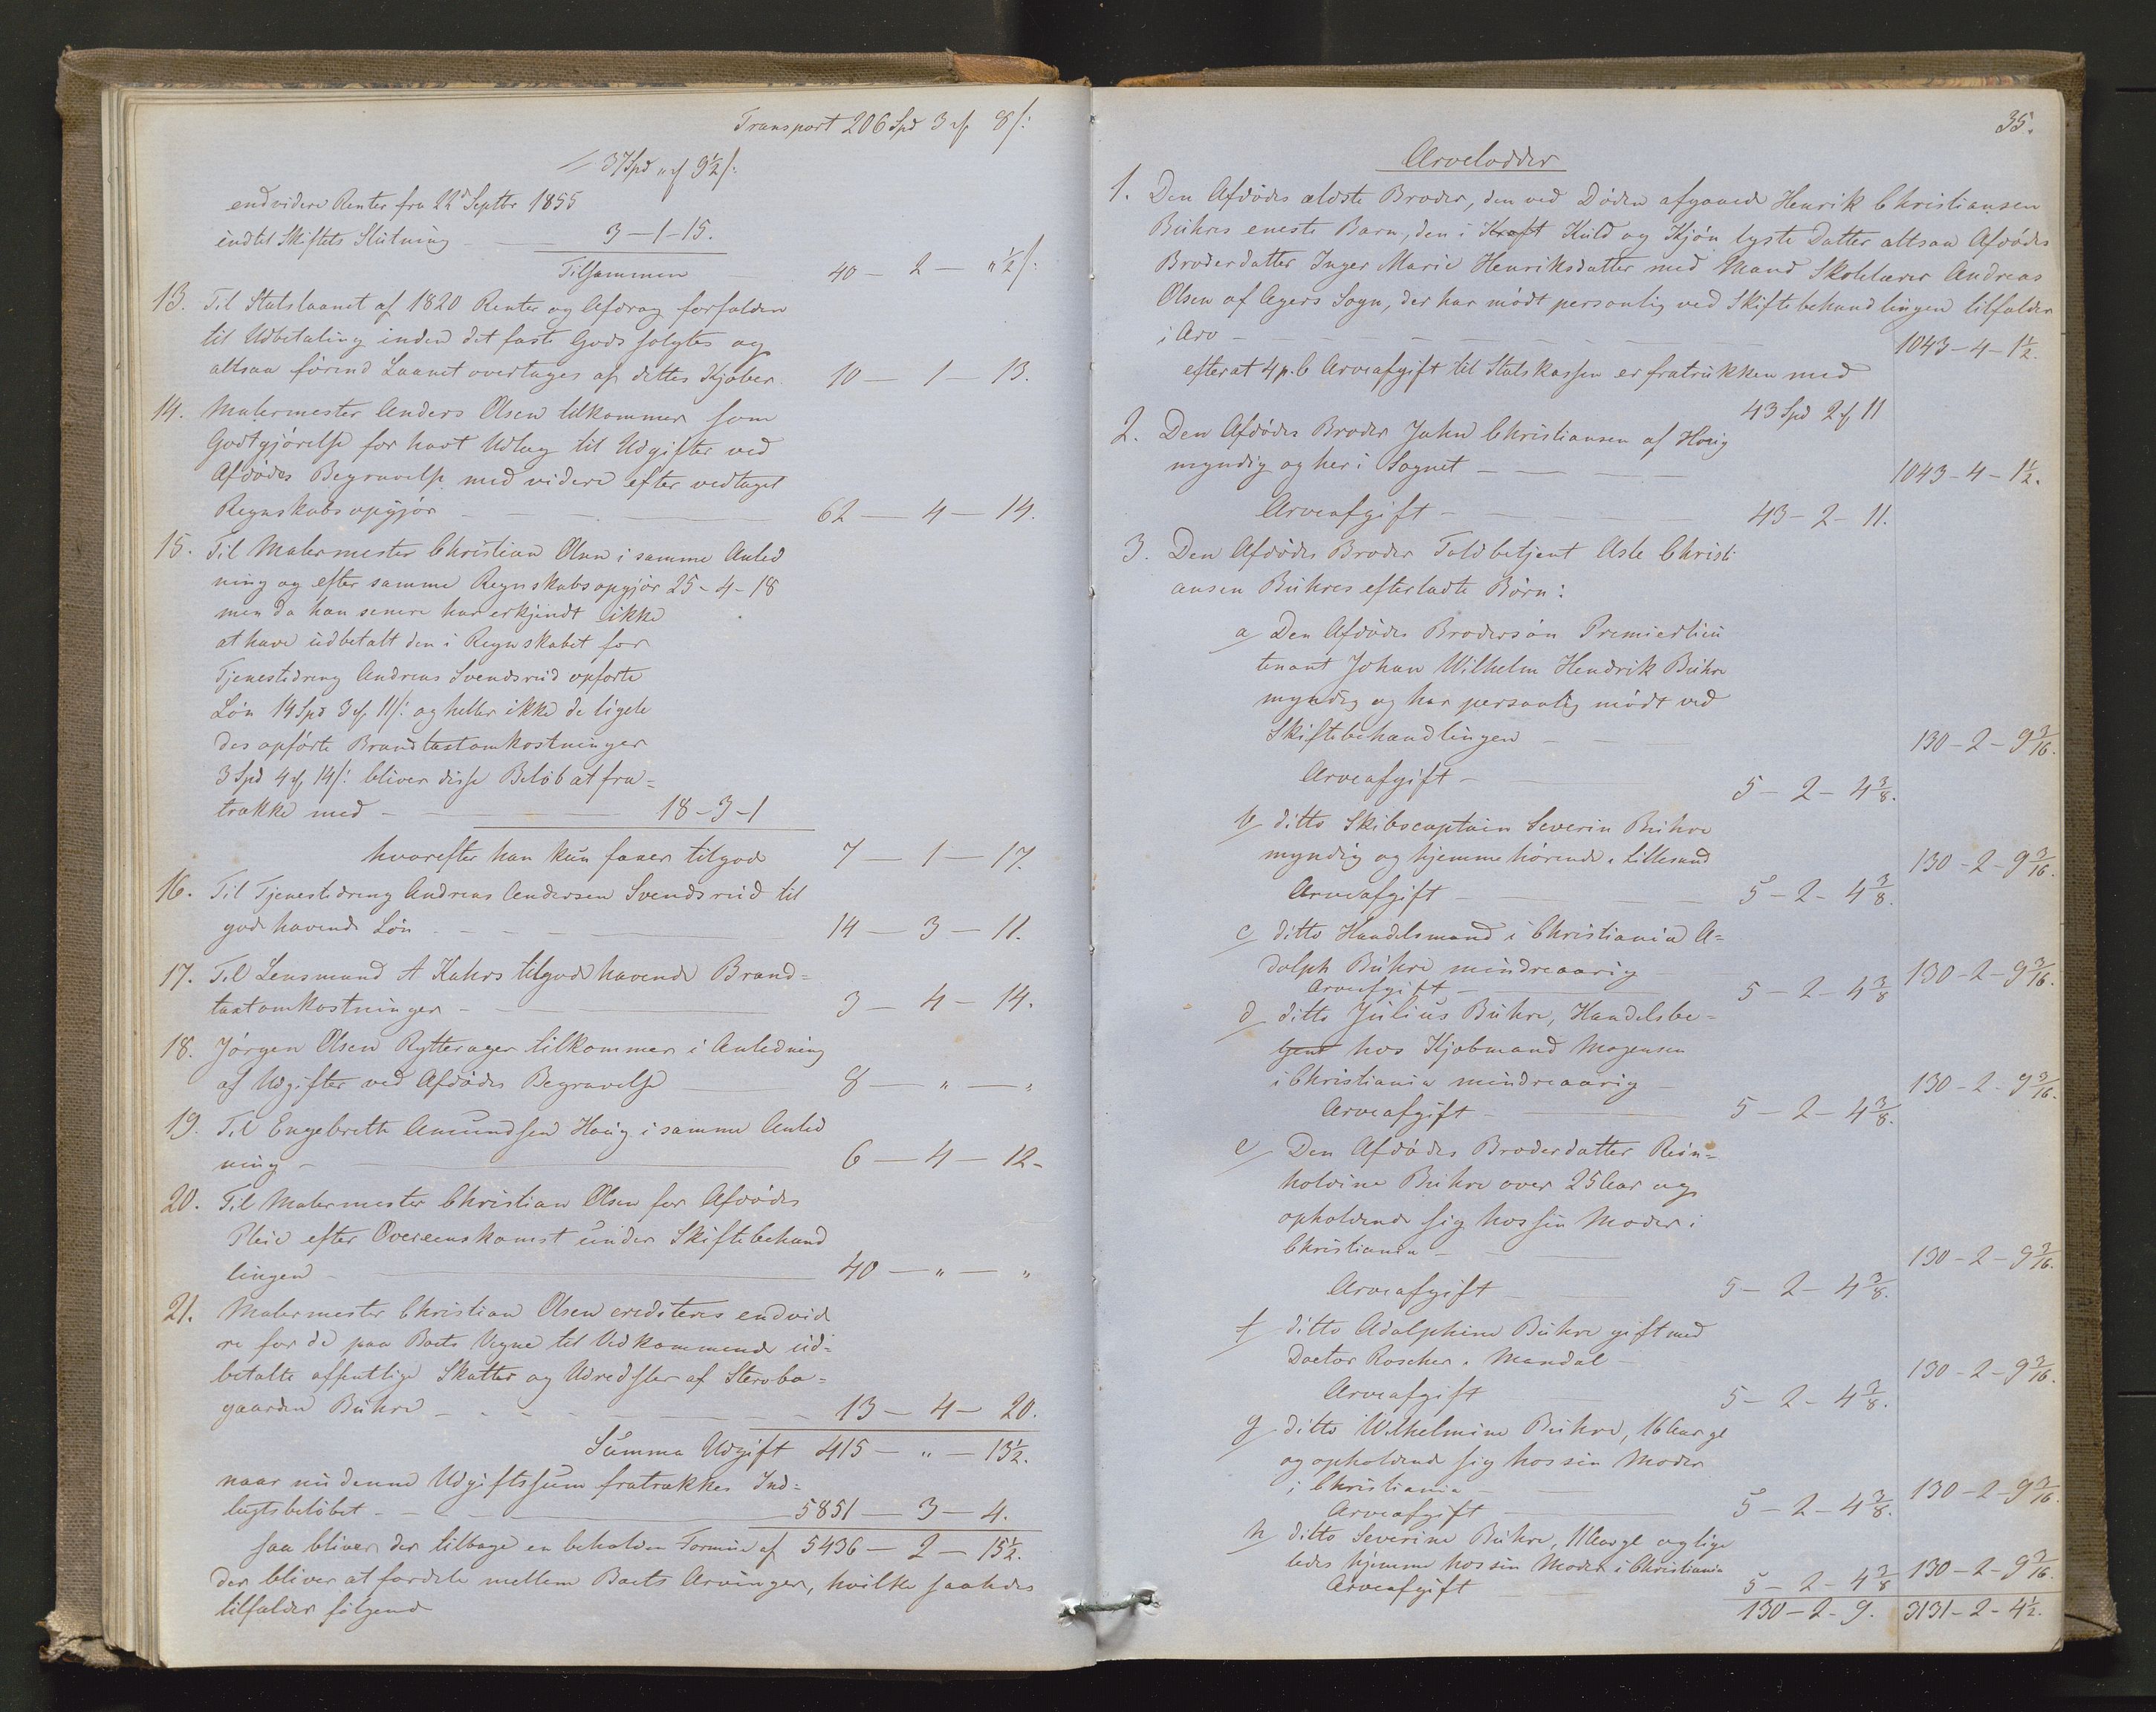 Transport 206 Spd 3 # 8 /:
37 Spd " # 9 1/2 /:
endvidere Renter fra 22d Septbr 1855
indtil Skiftets Slutning 3-1-15.
Tilsammen 40 - 2 - " 1/2 /:
13. Til Statslaanet af 1820 Renter og Afdrag forfalden
til Udbetaling inden det faste Gods solgtes og
altsaa førend Laanet overtages af dettes Kjøber 10 - 1 - 13.
14. Malermester Anders Olsen tilkommer som
Godtgjørelse for havt Udlæg til Udgifter ved
Afdødes Begravelse med videre efter vedtaget
Regnskabsopgjør - 62 - 4 - 14.
15. Til Malermester Christian Olsen i samme Anled
ning og efter samme Regnskabsopgjør 25-4-18
men da han senere har erkjendt ikke
at have udbetalt den i Regnskabet for
Tjenestedreng Andreas Svendsrud opførte
Løn 14 Spd 3 # 11 /: og heller ikke de ligele
des opførte Brandtaxtomkostninger
3 Spd 4 # 14 /: bliver disse Beløb at fra=
trække med - 18-3-1
hvorefter han kun faaer tilgode 7 - 1 - 17.
16. Til Tjenestedreng Andreas Andersen Svendsrud til
gode havende Løn - 14 - 3 - 11.
17. Til Lensmand A Kahrs tilgode havende Brand=
taxtomkostninger - 3 - 4 - 14.
18. Jørgen Olsen Rytterager tilkommer i Anledning
af Udgifter ved Afdødes Begravelse 8 - " - "
19. Til Engebreth Amundsen Houg i samme Anled
ning - 6 - 4 - 12 -
20. Til Malermester Christian Olsen for Afdødes
Pleie efter Overeenskomst under Skiftebehand
lingen - 40 - " - "
21. Malermester Christian Olsen crediteres endvide
re for de paa Boets Vegne til Vedkommende ud=
betalte offentlige Skatter og Udredsler af Stervbo=
gaarden Buhre - 13 - 4 - 20.
Summa Udgift 415 - " - 13 1/2.
naar nu denne Udgiftssum fratrækkes Ind=
tægtsbeløbet - 5851 - 3 - 4.
saa bliver der tilbage en beholden Formue af 5436 - 2 - 15 1/2.
der bliver at fordele mellem Boets Arvinger, hvilke saaledes
tilfalder følgende
35.
Arvelodder
1. Den Afdødes ældste Broder, den ved Døden afgaaede Henrik Christiansen
Buhres eneste Barn, den i Kraft Kuld og Kjøn lyste Datter altsaa Afdødes
Broderdatter Inger Marie Henriksdatter med Mand Skolelærer Andreas
Olsen af Agers Sogn, der har mødt personlig ved Skiftebehandlingen tilfalder
i Arv - 1043-4-1 1/2.
efterat 4 p. C Arveafgift til Statskassen er fratrukken med
43 Spd 2 # 11
2. Den Afdødes Broder John Christiansen af Houg
myndig og her i Sognet - 1043-4-1 1/2.
Arveafgift - 43-2-11.
3. Den Afdødes Broder Toldbetjent Asle Christi
ansen Buhres efterladte Børn:
a/ Den Afdødes Brodersøn Premierlieu
tenant Johan Wilhelm Hendrik Buhre
myndig og har personlig mødt ved
Skiftebehandlingen - 130-2-9 3/16.
Arveafgift - 5-2-4 3/8.
b/ ditto Skibscaptain Severin Buhre
myndig og hjemmehørende i Lillesand 130-2-9 3/16.
Arveafgift - 5-2-4 3/8.
c/ ditto Handelsmand i Christiania A=
dolph Buhre mindreaarig 130-2-9 3/16.
Arveafgift - 5-2-4 3/8
d/ ditto Julius Buhre, Handelsbe=
tjent hos Kjøbmand Mogensen
i Christiania mindreaarig - 130-2-9 3/16.
Arveafgift - 5-2-4 3/8.
e/ Den Afdødes Broderdatter Rein=
holdine Buhre over 25 Aar og
opholdende sig hos sin Moder i
Christiania - 130-2-9 3/16.
Arveafgift - 5-2-4 3/8.
f/ ditto Adolphine Buhre gift med
Doctor Roscher i Mandal - 130-2-9 3/16.
Arveafgift 5-2-4 3/8.
g/ ditto Wilhelmine Buhre, 16 Aar gl
og opholdende sig hos sin Moder
i Christiania - 130-2-9 3/16.
Arveafgift - 5-2-4 3/8.
h/ ditto Severine Buhre, 11 Aar gl og lige
ledes hjemme hos sin Moder i Christiania 130-2-9 3/16.
Arveafgift 5-2-4 3/8
130-2-9. 3131-2-4 1/2.